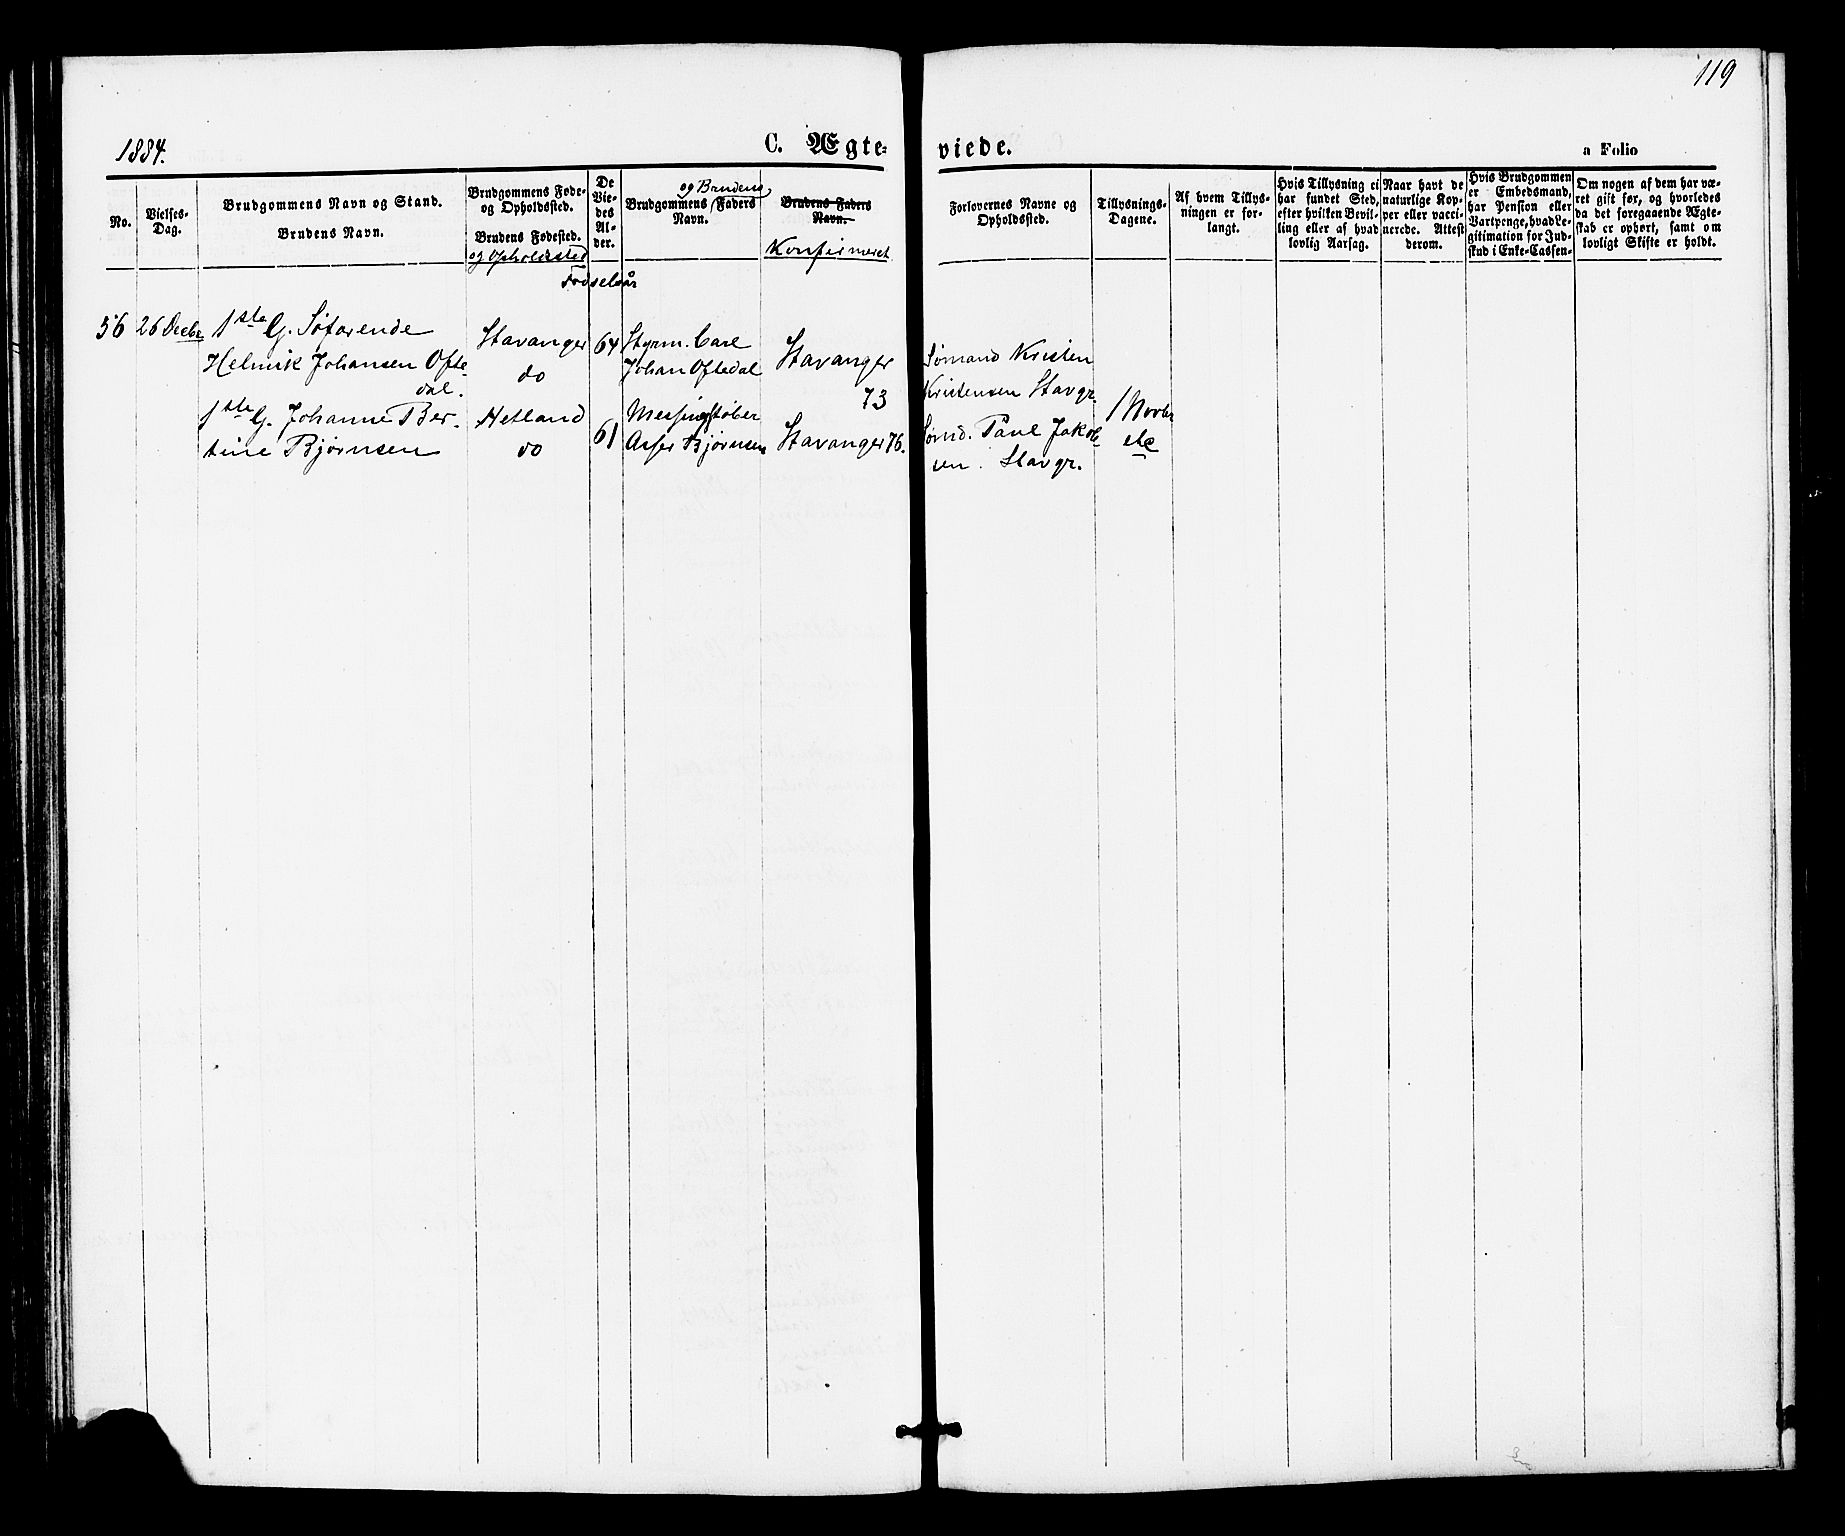 119
1884.
C. Ægte-
viede.
a Folio
No.
Vielses-
Dag.
Brudgommens Navn og Stand.
Brudens Navn.
Brudgommens Føde-
og Opholdssted.
Brudens Fødested.
og Opholdssted
De
Vie-
des
Al-
der.
Fødselsår
og Brudens
Brudgommens Faders
Navn.
Brudens Faders
Navn.
Konfirmeret
Forlovernes Navne og
Opholdssted.
Tillysnings-
Dagene.
Af hvem Tillys-
ningen er for-
langt.
Hvis Tillysning ei
har fundet Sted,
efter hvilken Bevil-
ling eller af hvad
lovlig Aarsag.
Naar havt de
naturlige Kop-
per eller vacci-
nerede. Attest
derom.
Hvis Brudgommen
er Embedsmand,
har Pension eller
Vartpenge, hvad Le-
gitimation for Ind-
skud i Enke-Cassen.
Om nogen af dem har væ-
ret gift før, og hvorledes
da det foregaaende Ægte-
skab er ophørt, samt om
lovligt Skifte er holdt.
56
26 Decbr
1ste G. Søfarende
Helmik Johansen Ofte-
dal.
1ste G. Johanne Ber-
tine Bjørnsen
Stavanger
do
Hetland
do
64
61
Styrm. Carl
Johan Oftedal
Messingstøber
Asser Bjørnsen
Stavanger
73
Stavanger 76.
Sømand Kristen
Kristensen Stavgr.
Sømd. Paul Jakob-
sen. Stavgr.
1 Novbr
etc